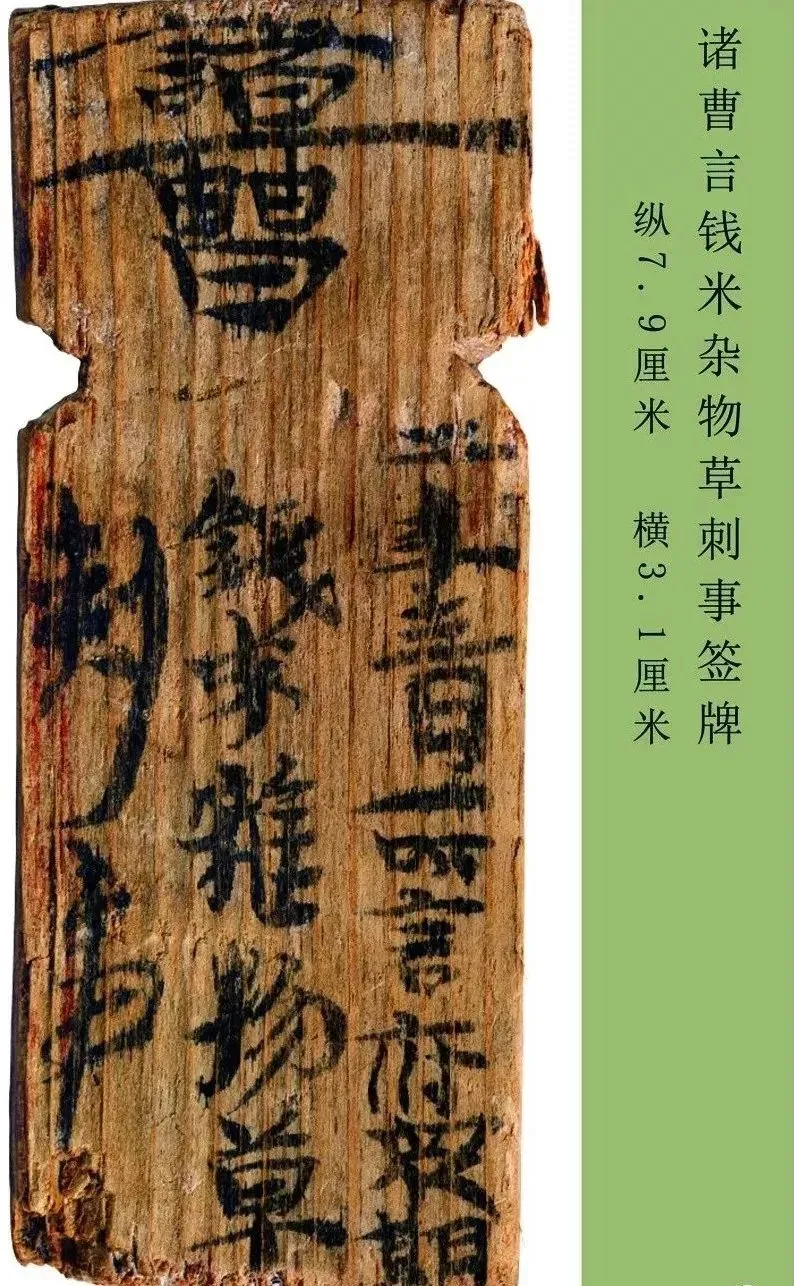 诸曹言钱米杂物草刺事签牌
纵7.9厘米 横3.1厘米
諸曹
所言府
錢米雜物草
刺事